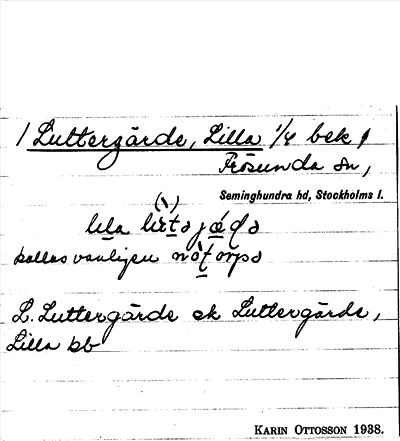 / Luttergärde, Lilla 1/4 bek
Frösunda sn,
Seminghundra hd, Stockholms l.
lɩla
kallas vanligen
L. Luttergärde ek Luttergärde,
Lilla kb
KARIN OTTOSSON 1938.